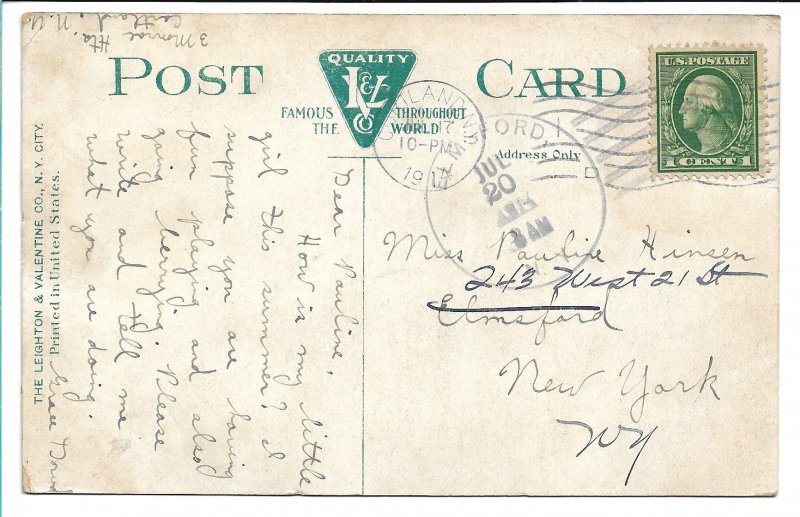 POST CARD
QUALITY
L&V
CO
FAMOUS THROUGHOUT
THE WORLD
Address Only
U.S. POSTAGE
1 CENT 1
10-PM
191
ORD,
JUL
20
8 AM
3 Monroe Hts
Cortland, N.Y.
Dear Pauline,
How is my little
girl this summer? I
suppose you are having
fun playing and also
going berrying. Please
write and tell me
what you are doing.
Grace
Miss Pauline Hinsen
243 West 21 St
Elmsford
New York
NY
THE LEIGHTON & VALENTINE CO., N.Y. CITY.
Printed in United States.